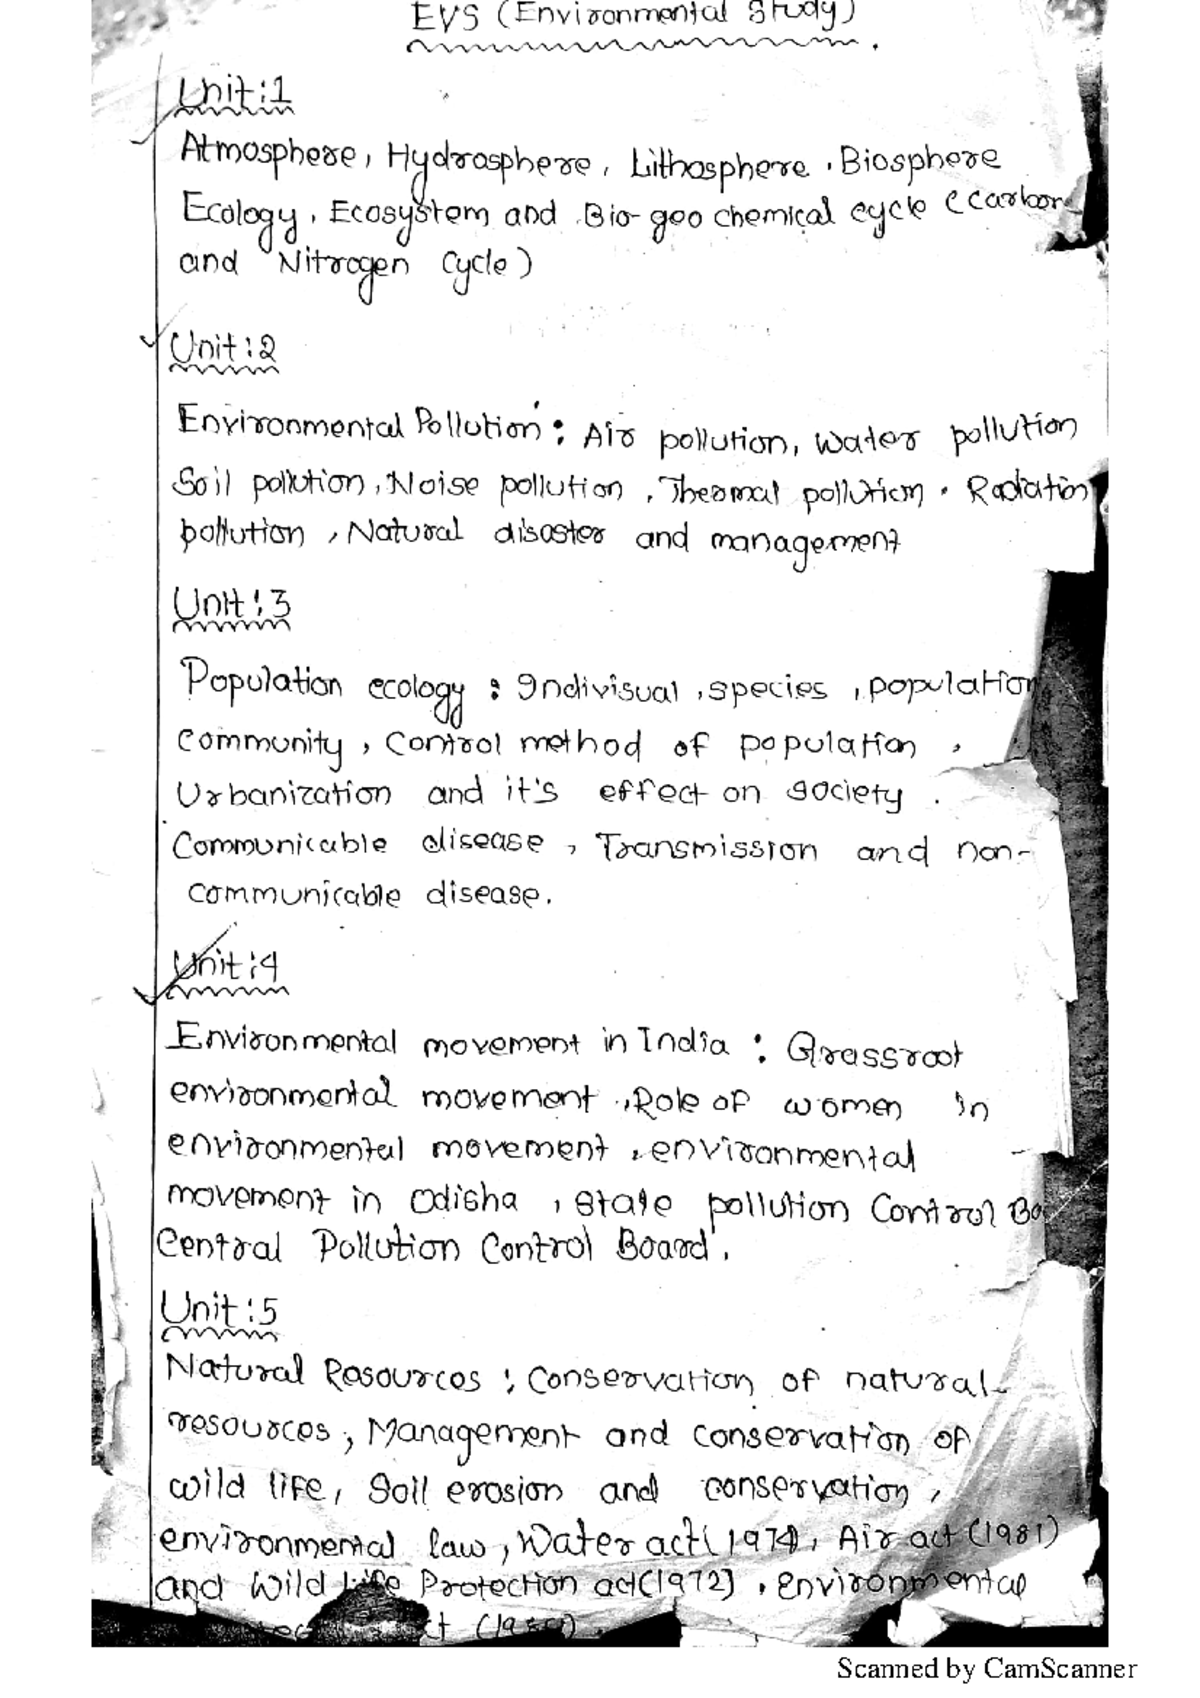 EVS (Environmental Study)
Unit:1
Atmosphere, Hydrosphere, Lithosphere, Biosphere
Ecology, Ecosystem and Bio-geo chemical cycle (carbon
and Nitrogen Cycle)
Unit:2
Environmental Pollution: Air pollution, water pollution
Soil pollution, Noise pollution, Thermal pollution, Radiation
pollution, Natural disaster and management
Unit:3
Population ecology: Indivisual, species, population
community, control method of population,
Urbanization and it's effect on society.
Communicable disease, Transmission and non-
communicable disease.
Unit:4
Environmental movement in India: Grassroot
environmental movement, Role of women in
environmental movement, environmental
movement in Odisha, State pollution Control Bo
Central Pollution Control Board.
Unit:5
Natural Resources: Conservation of natural
resources, Management and conservation of
wild life, Soil erosion and conservation,
environmental law, Water act (1974), Air act (1981)
and Wild Life Protection act (1972), environmental
Scanned by CamScanner